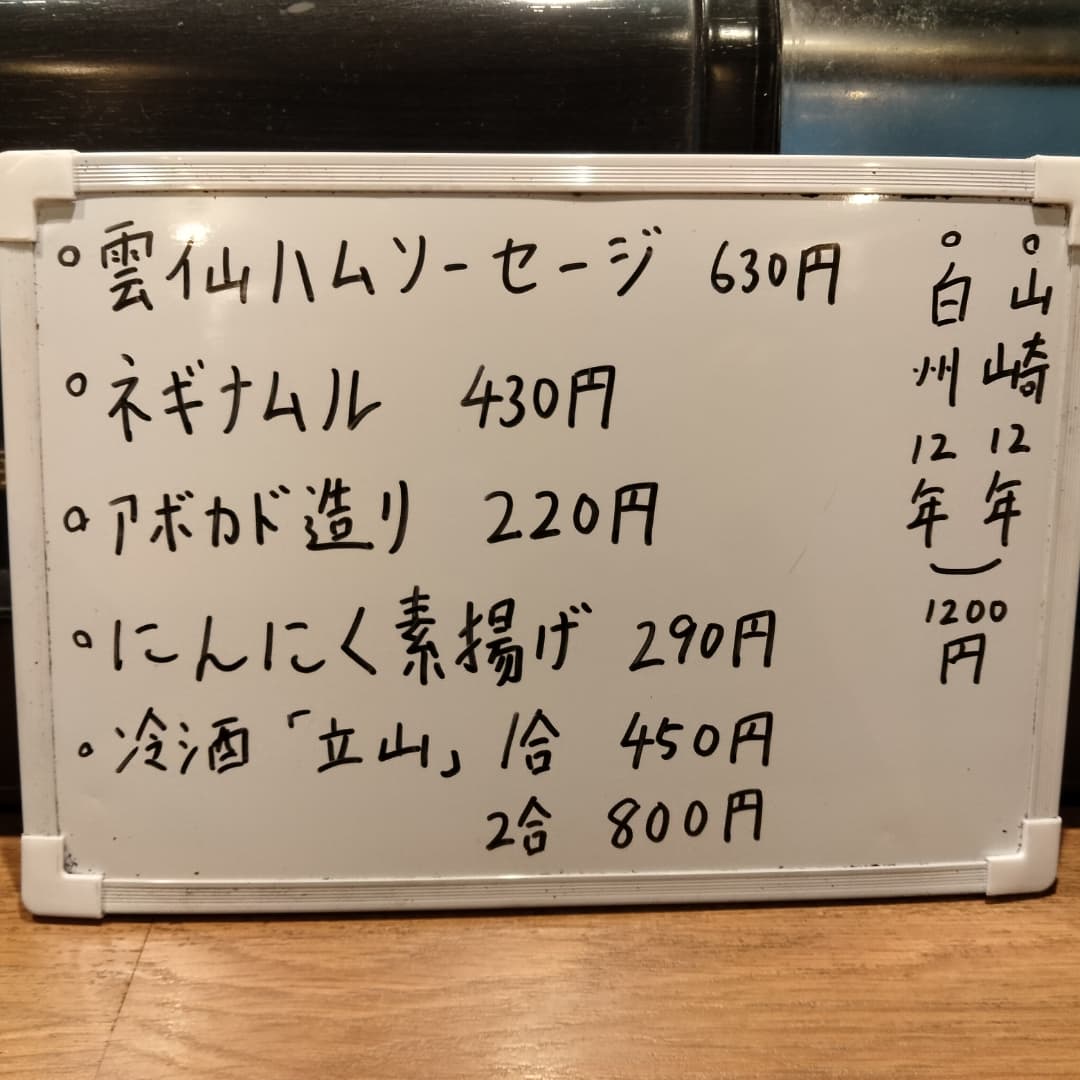 ○雲仙ハムソーセージ 630円
○ネギナムル 430円
○アボカド造り 220円
○にんにく素揚げ 290円
○冷酒「立山」1合 450円
2合 800円
○山崎12年
○白州12年
1200円